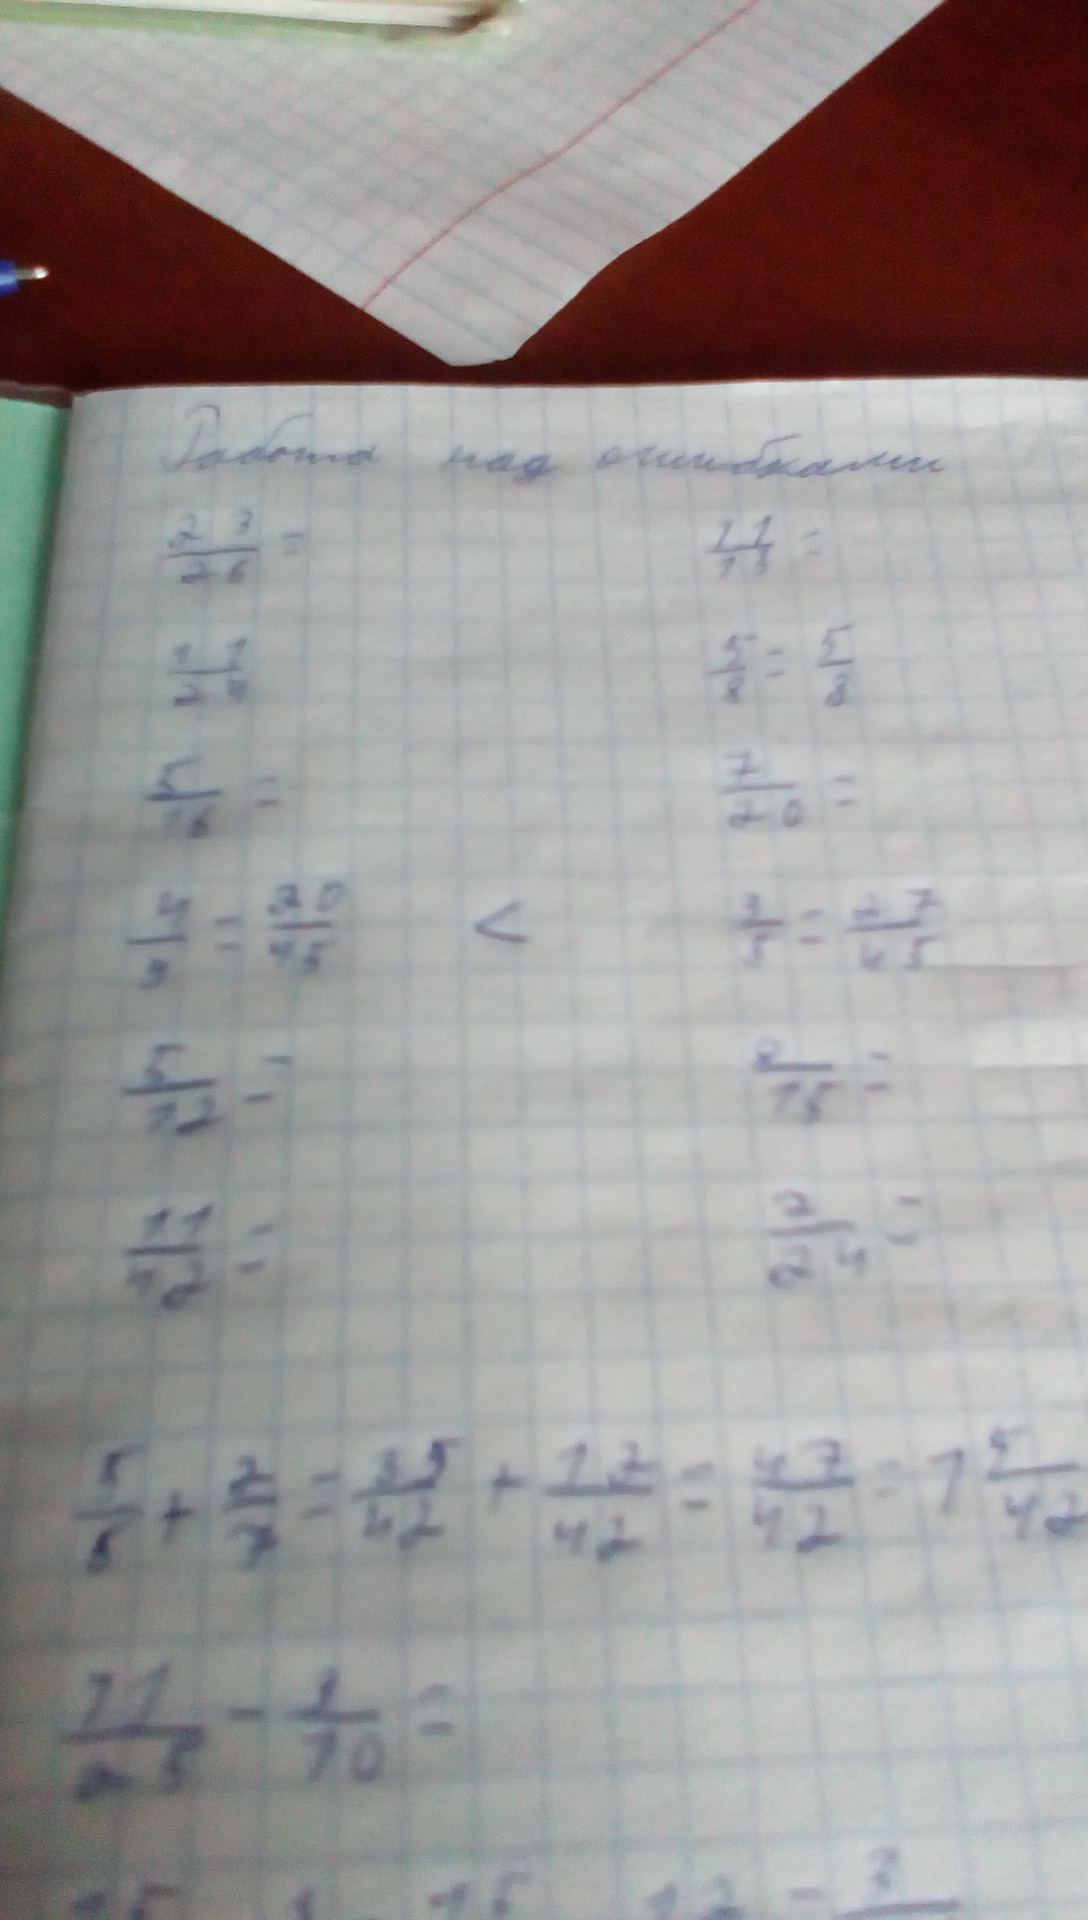 Работа над ошибками
23/26 = 11/13 =
11/24 5/8 = 5/8
5/16 = 7/20 =
4/9 = 20/45 < 3/5 = 27/45
5/12 = 8/15 =
11/42 = 7/24 =
5/6 + 2/7 = 35/42 + 12/42 = 47/42 = 1 5/42
11/25 - 1/10 =